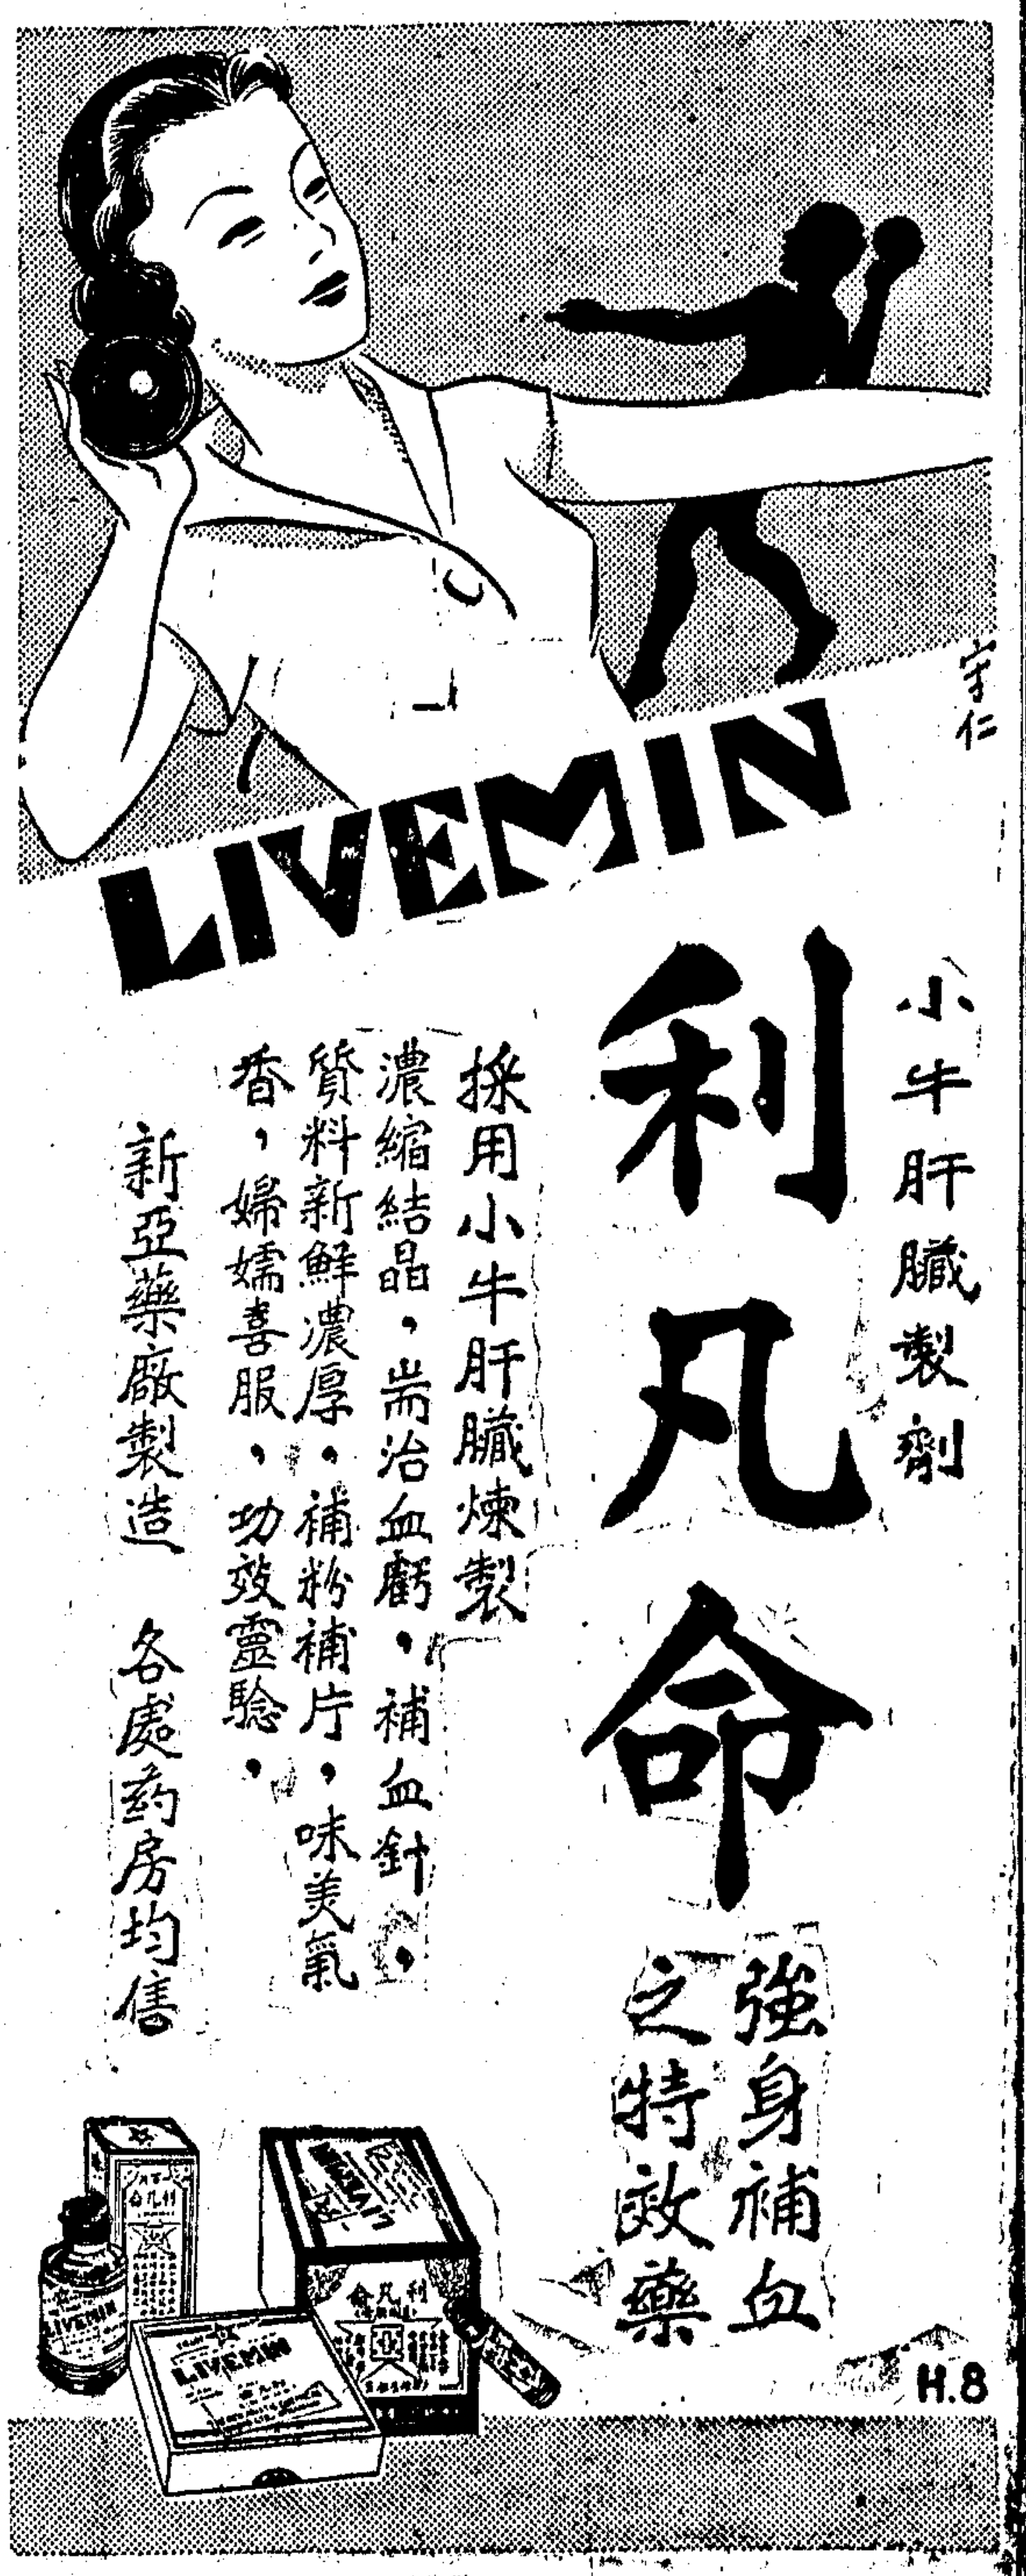 宇仁
LIVEMIN
小牛肝臟製劑
利凡命
強身補血
之特效藥
採用小牛肝臟煉製
濃縮結晶，耑治血虧，補血針，
質料新鮮濃厚，補粉補片，味美氣
香，婦孺喜服，功效靈騐，
新亞藥廠製造　各處药房均售
命凡利
LIVEMIN
LIVEMIN
LIVEMIN
H.8